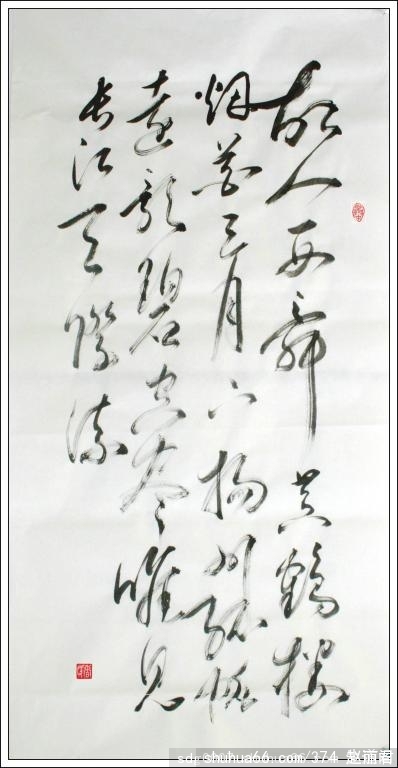 故人西辞黄鶴楼
烟花三月下揚州孤帆
遠影碧空尽唯见
长江天際流
shuhua66.com/374